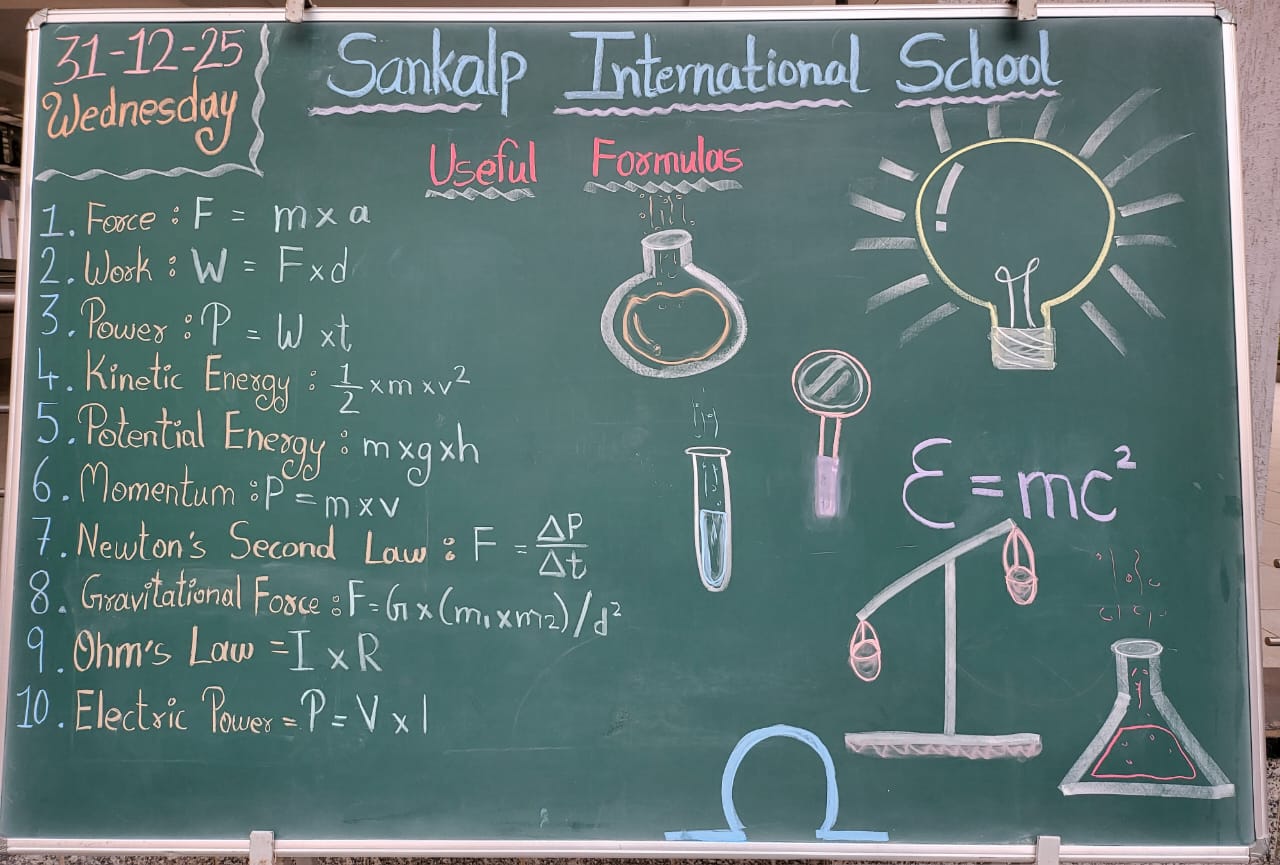 31-12-25
Wednesday
Sankalp International School
Useful Formulas
1. Force : F = m x a
2. Work : W = F x d
3. Power : P = W x t
4. Kinetic Energy : 1/2 x m x v²
5. Potential Energy : m x g x h
6. Momentum : P = m x v
7. Newton's Second Law : F = ΔP/Δt
8. Gravitational Force : F = G x (m₁ x m₂) / d²
9. Ohm's Law = I x R
10. Electric Power = P = V x I
E = mc²